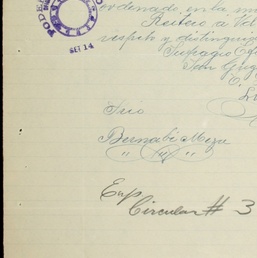 PODE
SET 14
ordenado, en la m
Reitero á Vd
respeto y distingui
Sufragio Ef
San Greg
Srio
Bernabé Meza
Exp
Circular # 3